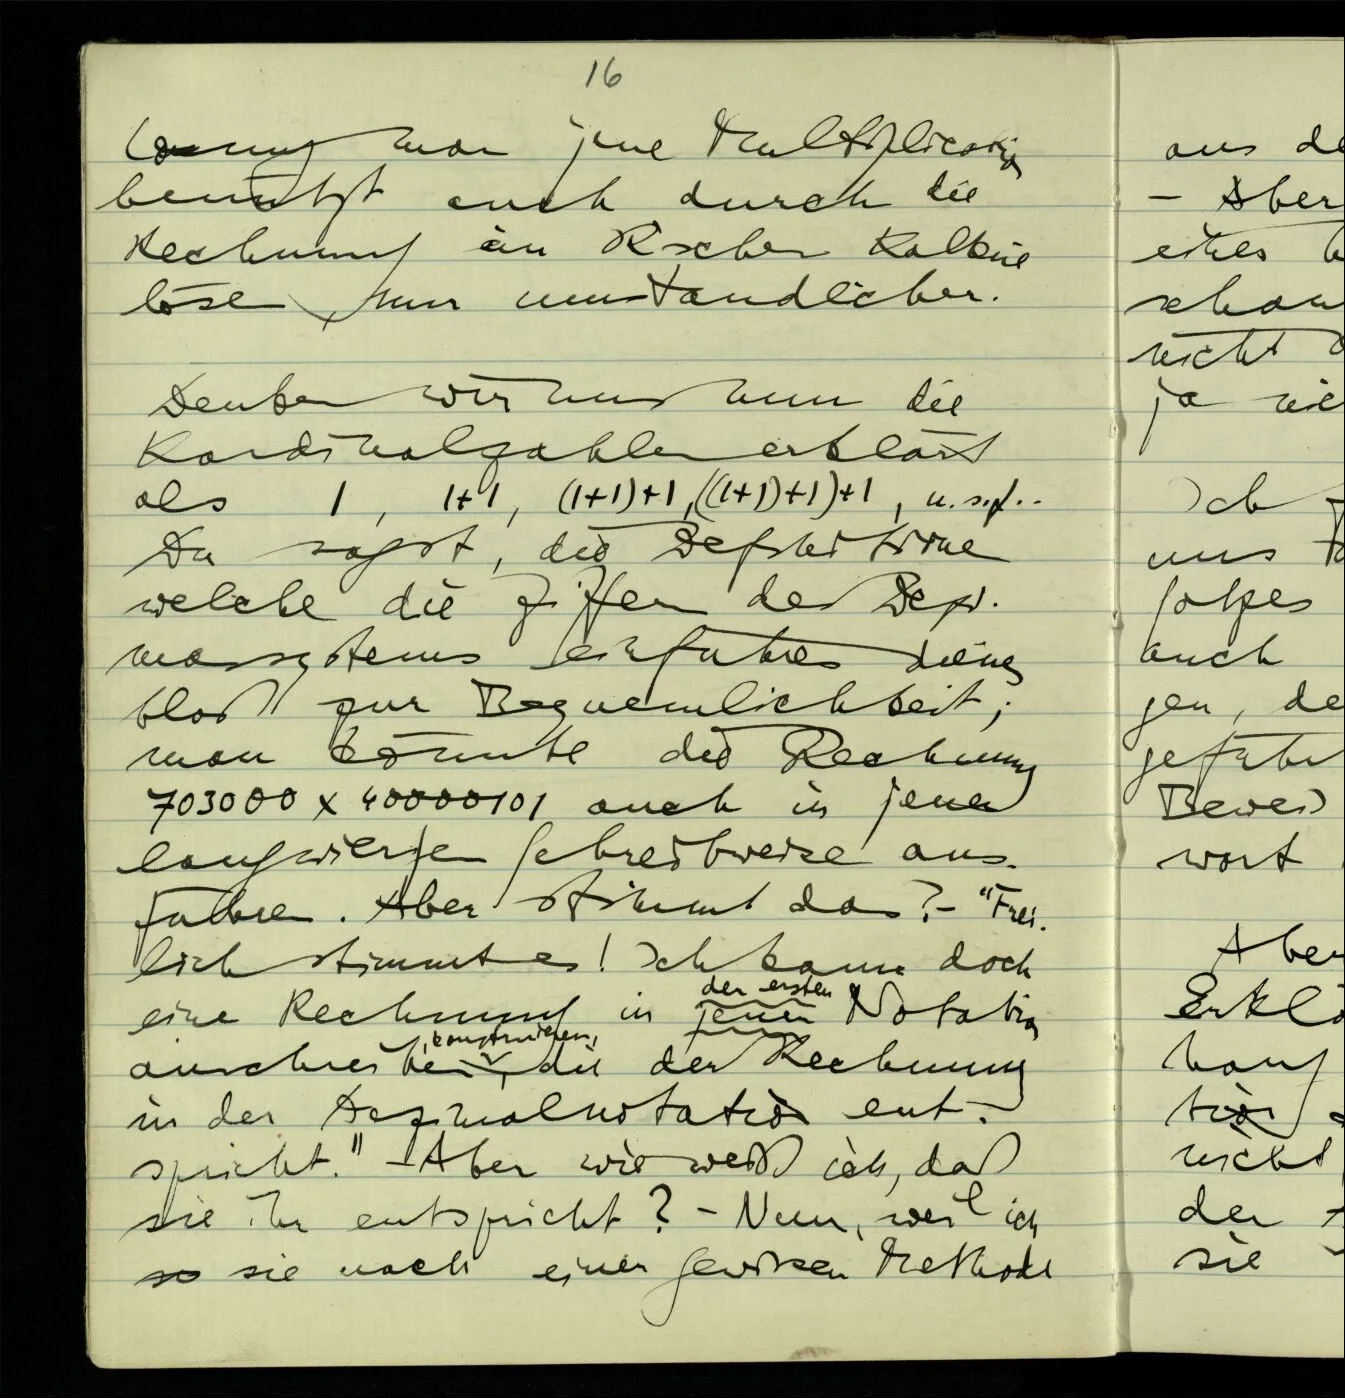 16
lösung man jene Multiplication
benützt auch durch die
Rechnung im R'schen Kalkül
löse, nur umständlicher.
Denken wir uns nun die
Kardinalzahlen erklärt
als 1, 1+1, (1+1)+1, ((1+1)+1)+1, u.s.f..
Du sagst, die Definitionen
welche die Ziffern des Dezi-
malsystems einführen dienen
bloß zur Bequemlichkeit;
man könnte die Rechnung
703000 x 40000101 auch in jener
langwierigen Schreibweise aus-
führen. Aber stimmt das? – "Frei-
lich stimmt es! Ich kann doch
eine Rechnung in jener der ersten Notation
anschreiben, konstruieren, die der Rechnung
in der Dezimalnotation ent-
spricht." – Aber wie weiß ich, daß
sie ihr entspricht? – Nun, weil ich
so sie nach einer gewissen Methode
aus de
– Aber
eines
schau
nicht
ja nic
Ich
uns
folges
auch
gen, de
geführ
Beweis
wort
Aber
Erklä
hang
tion
nicht
der
sie